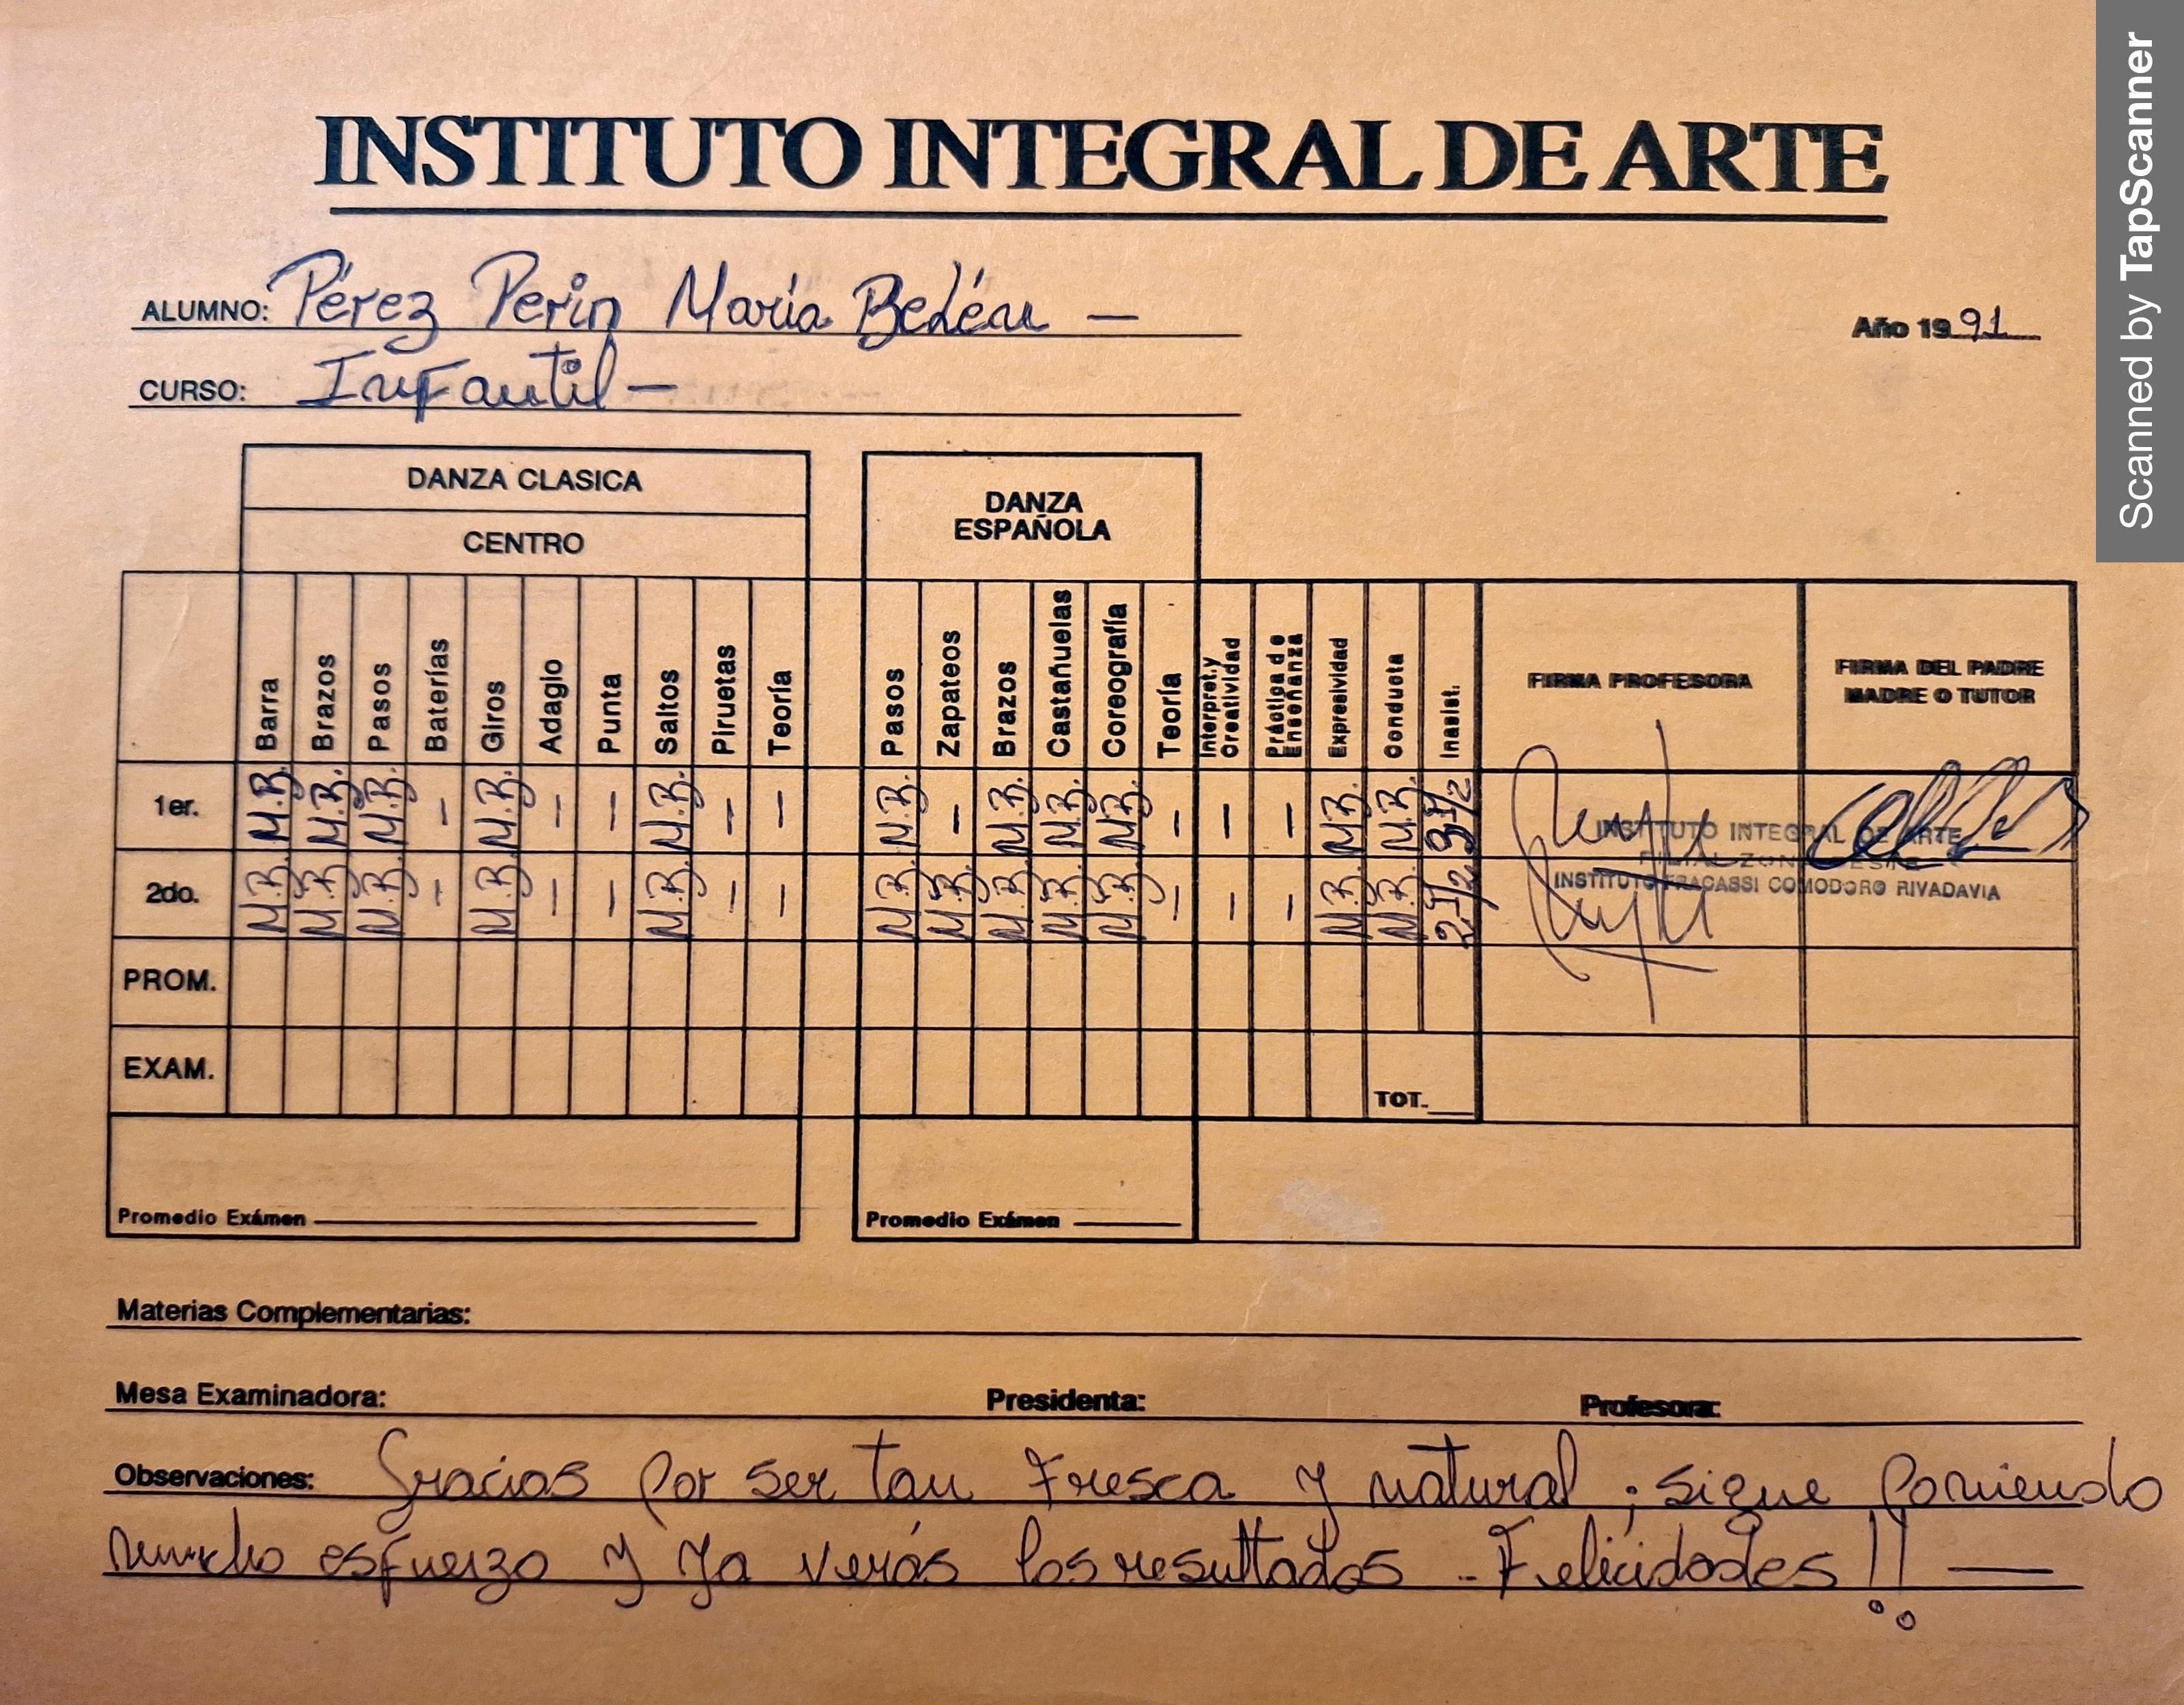 INSTITUTO INTEGRAL DE ARTE
ALUMNO: Pérez Perin María Belén —
Año 1991
CURSO: Infantil —
DANZA CLASICA
CENTRO
DANZA
ESPAÑOLA
Barra Brazos Pasos Baterías Giros Adagio Punta Saltos Piruetas Teoría Pasos Zapateos Brazos Castañuelas Coreografía Teoría Interpret. y Creatividad Práctica de Enseñanza Expresividad Conducta Inasist. FIRMA PROFESORA FIRMA DEL PADRE MADRE O TUTOR
1er. M.B. M.B. M.B. — M.B. — — M.B. — — M.B. — M.B. M.B. M.B. — — — M.B. M.B. 3 1/2
2do. M.B. M.B. M.B. — M.B. — — M.B. — — M.B. M.B. M.B. M.B. M.B. — — — M.B. M.B. 2 1/2
INSTITUTO INTEGRAL DE ARTE
INSTITUTO FRACASSI COMODORO RIVADAVIA
PROM.
EXAM.
TOT.
Promedio Exámen
Promedio Exámen
Materias Complementarias:
Mesa Examinadora: Presidenta: Profesora:
Observaciones: Gracias por ser tan Fresca y natural ; sigue poniendo
mucho esfuerzo y ya verás los resultados .. Felicidades !! —
Scanned by TapScanner